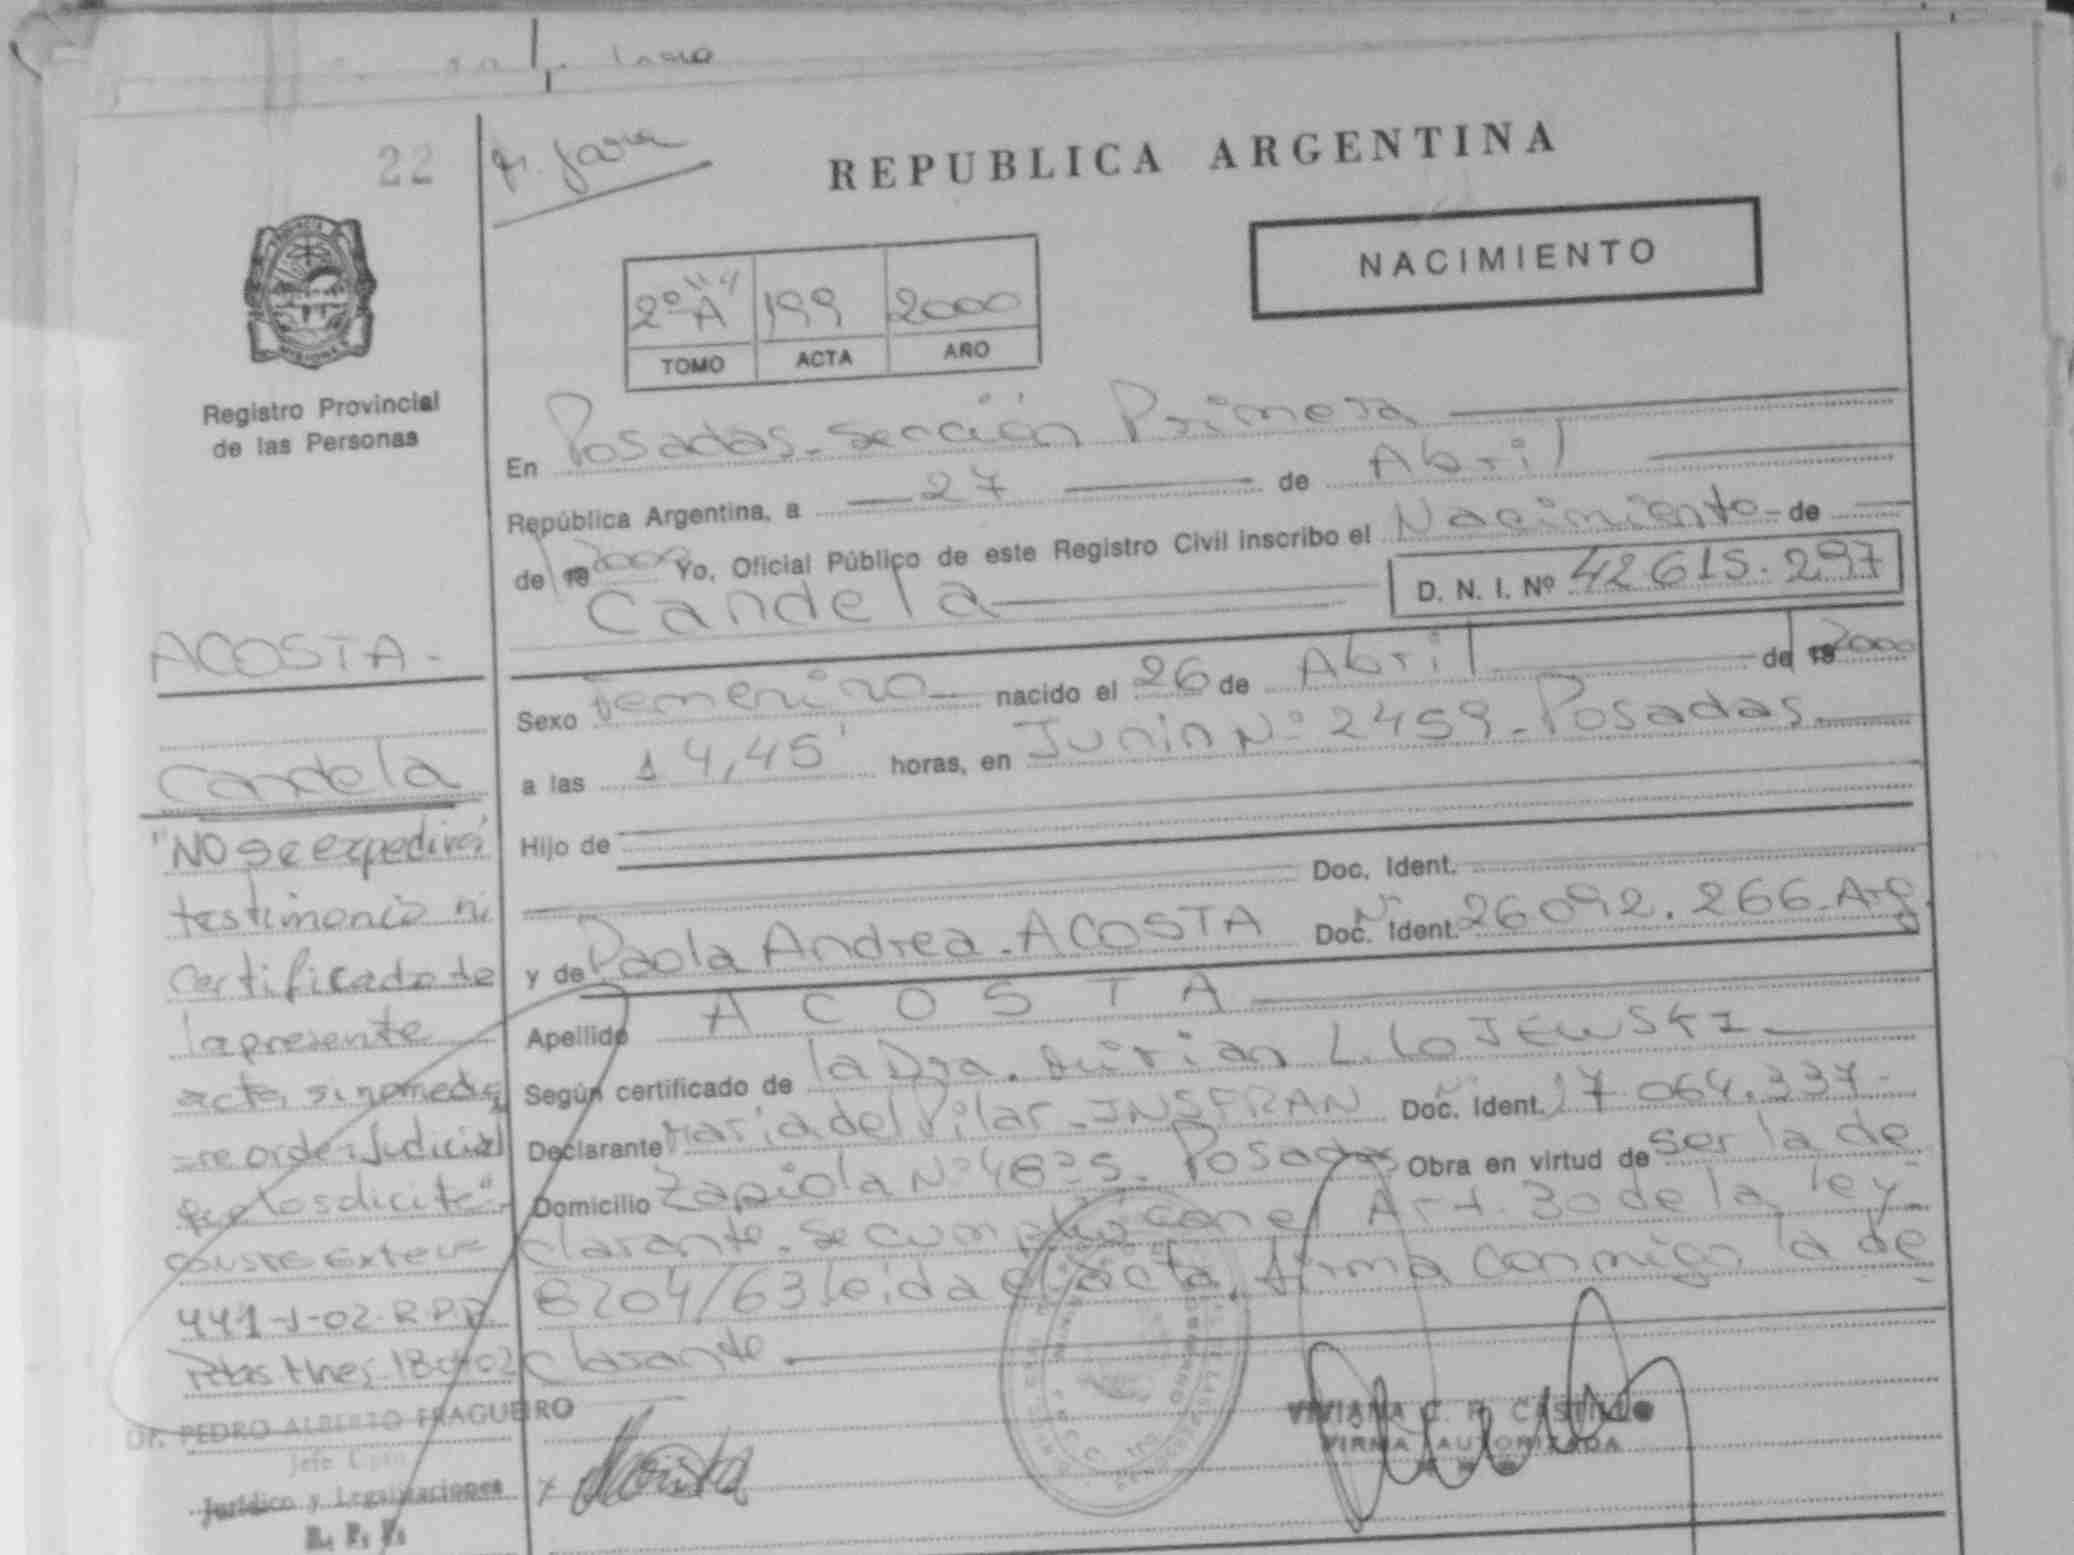 22
REPUBLICA ARGENTINA
NACIMIENTO
2º "A" 199 2000
TOMO ACTA AÑO
Registro Provincial
de las Personas
En Posadas - Sección Primera
República Argentina, a 27 de Abril
de 19 2000 Yo, Oficial Público de este Registro Civil inscribo el Nacimiento de
Candela
D. N. I. Nº 42615.297
ACOSTA -
Candela
"NO se expedirá
testimonio ni
certificado de
la presente
acta, si no media
-re orden Judicial
que lo solicite"-
441-J-02-R.P.P.
Of. PEDRO ALBERTO FRAGUEIRO
Jefe Dpto.
Jurídico y Legalizaciones
R. P. P.
Sexo Femenino nacido el 26 de Abril de 19 2000
a las 14,45' horas, en Junin Nº 2459 - Posadas
Hijo de
Doc. Ident.
y de Paola Andrea - ACOSTA Doc. Ident. Nº 26092.266 - Arg.
Apellido ACOSTA
Según certificado de la Dra. Mirian L. LOJEWSKI
Declarante Maria del Pilar - INSFRAN Doc. Ident. Nº 17064.337-
Domicilio Zapiola Nº Posadas Obra en virtud de ser la de
clarante. se cumplió con el Art. 30 de la ley-
8204/63 leida el acta, firma conmigo la de-
clarante
VIVIANA C. R. CASTILLO
FIRMA AUTORIZADA